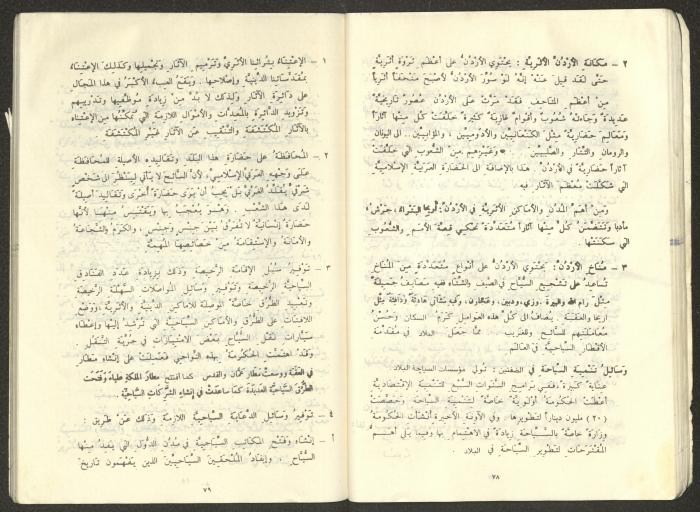 ٢ – مكانة الأردن الأثرية : يحتوي الأردن على أعظم ثروة أثرية
حتى لقد قيل عنه إنه لو سور الأردن لأصبح متحفا أثريا
من أعظم المتاحف فقد مرت على الأردن عصور تاريخية
عديدة وجاءته شعوب وأقوام غازية كثيرة خلفت كل منها آثارا
ومعالم حضارية مثل الكنعانيين والأدوميين ، والمؤابيين . الى اليونان
والرومان والتتار والصليبيين . وغيرهم من الشعوب التي خلفت
آثارا حضارية في الأردن . هذا بالإضافة الى الحضارة العربية الإسلامية
التي شكلت معظم الآثار فيه
ومن أهم المدن والأماكن الأثرية في الأردن : أريحا البتراء ، جرش ،
مادبا وتتضمن كل منها آثارا متعددة تحكي قصة الأمم والشعوب
التي سكنتها .
٣ – مناخ الأردن : يحتوي الأردن على أنواع متعددة من المناخ
تساعد على تشجيع السياح في الصيف والشتاء ففيه مصايف جميلة
مثل رام الله والبيرة ، وزي ، ودبين ، وعنجارة ، وفيه مشاتي هادئة دافئة مثل
أريحا والعقبة . يضاف الى كل هذه العوامل كرم السكان وحسن
معاملتهم للسائح والغريب . مما جعل البلاد في مقدمة
الأقطار السياحية في العالم
وسائل تنمية السياحة في الضفتين : تولي مؤسسات السياحة البلاد
عناية كبيرة ، ففي برامج السنوات السبع للتنمية الاقتصادية
أعطت الحكومة أولوية خاصة لتنمية السياحة وخصصت
(٢٠) مليون دينارا لتطويرها . وفي الآونة الأخيرة أنشأت الحكومة
وزارة خاصة بالسياحة زيادة في الاهتمام بها وفيما يلي أهم
المقترحات لتطوير السياحة في البلاد .
٧٨
١ – الإعتناء بتراثنا الأثري وترميم الآثار وتجميلها وكذلك الإعتناء
بمقدساتنا الدينية وإصلاحها . ويقع العبء الأكبر في هذا المجال
على دائرة الآثار ولذلك لا بد من زيادة موظفيها وتدريبهم
وتزويد الدائرة بالمعدات والأموال اللازمة التي تمكنها من الإعتناء
بالآثار المكتشفة والتنقيب عن الآثار غير المكتشفة
٢ – المحافظة على حضارة هذا البلد وتقاليده الأصيلة للمحافظة
على وجهه العربي الإسلامي ، لأن السائح لا يأتي لينظر الى شخص
شرقي يقلد الغربي بل يحب أن يرى حضارة أخرى وتقاليد أصيلة
لدى هذا الشعب . وهو يعجب بها ويقتبس منها لأنها
حضارة إنسانية لا تفرق بين جنس وجنس ، والكرم والشجاعة
والأمانة والإستقامة من خصائصها المهمة
٣ – توفير سبل الإقامة الرخيصة وذلك بزيادة عدد الفنادق
السياحية الرخيصة وتوفير وسائل المواصلات السهلة الرخيصة
وتعبيد الطرق خاصة الموصلة للأماكن الدينية والأثرية ، ووضع
اللافتات على الطرق والأماكن السياحية التي ترشد إليها وإعطاء
سيارات نقل السياح بعض الامتيازات في حرية التنقل .
وقد اهتمت الحكومة بهذه النواحي فعملت على إنشاء مطار
في العقبة ووسعت مطار عمان والقدس كما افتتح مطار الملكة علياء وفتحت
الطرق السياحية العديدة كما ساعدت في إنشاء الشركات السياحية .
٤ – توفير وسائل الدعاية السياحية اللازمة وذلك عن طريق :
أ – إنشاء وفتح المكاتب السياحية في مدن الدول التي يفد منها
السياح . وإيفاد الملحقين السياحيين الذين يتفهمون تاريخ
٧٩